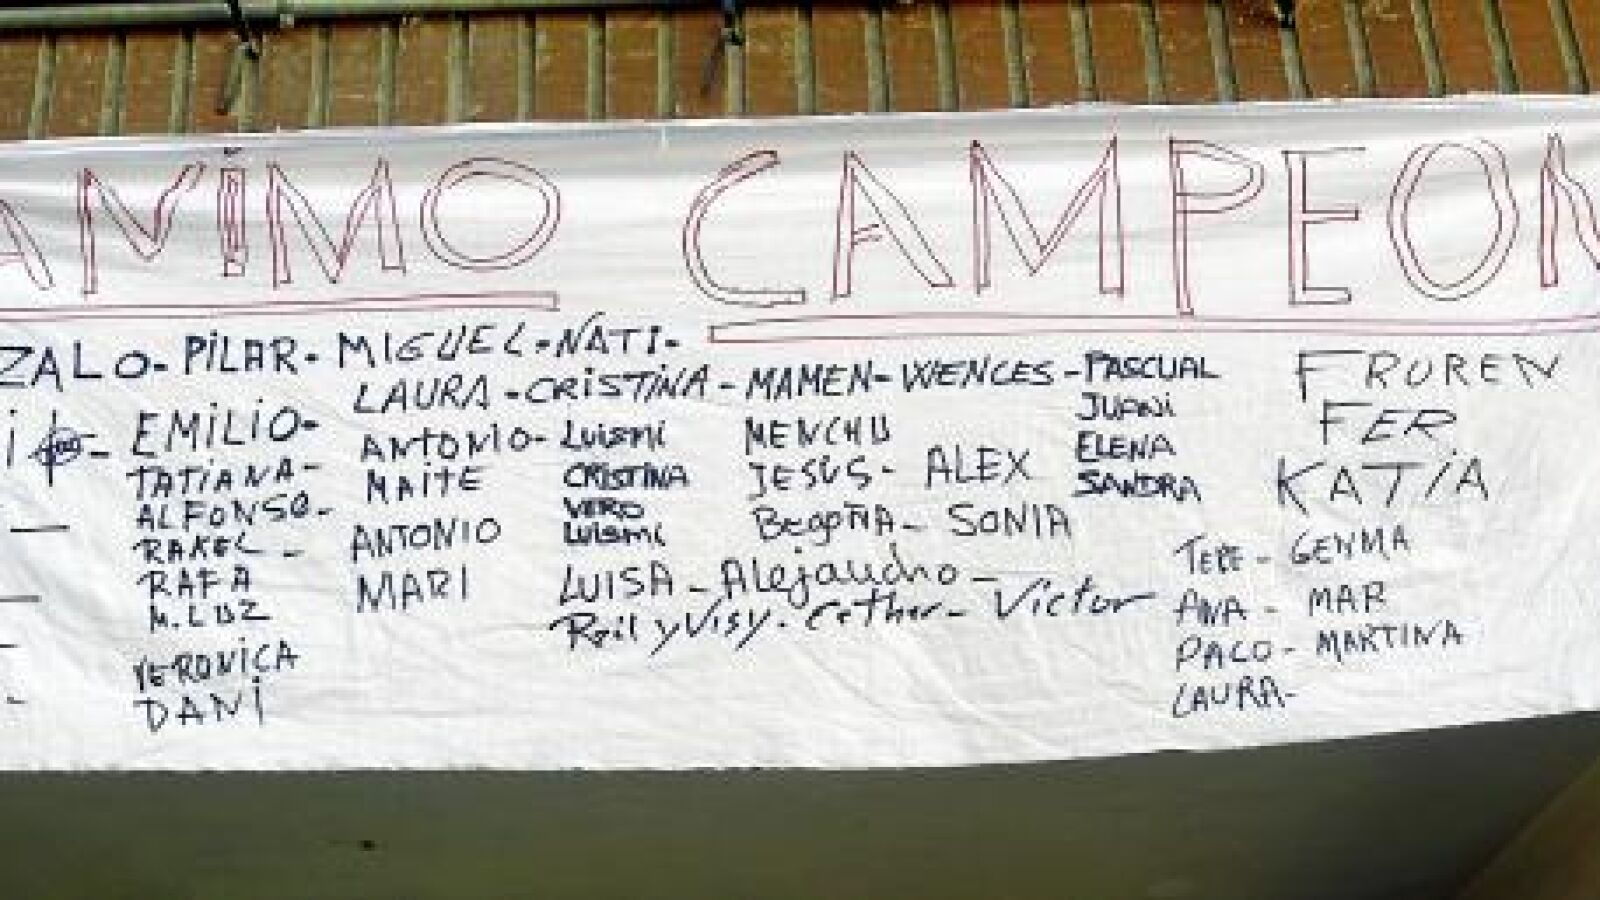 ANIMO CAMPEON
ZALO - PILAR - MIGUEL - NATI -
LAURA - CRISTINA - MAMEN - WENCES - PASCUAL
JUANI
ELENA
SANDRA
EMILIO -
TATIANA -
ALFONSO -
RAKEL -
RAFA
M. LUZ
VERONICA
DANI
ANTONIO -
MAITE
ANTONIO
MARI
Luismi
CRISTINA
VERO
Luismi
MENCHU
JESUS - ALEX
BEGOÑA - SONIA
LUISA - Alejandro -
y Visy. Esther - Victor
FRUREN
FER
KATIA
TEPE - GENMA
ANA - MAR
PACO - MARTINA
LAURA -